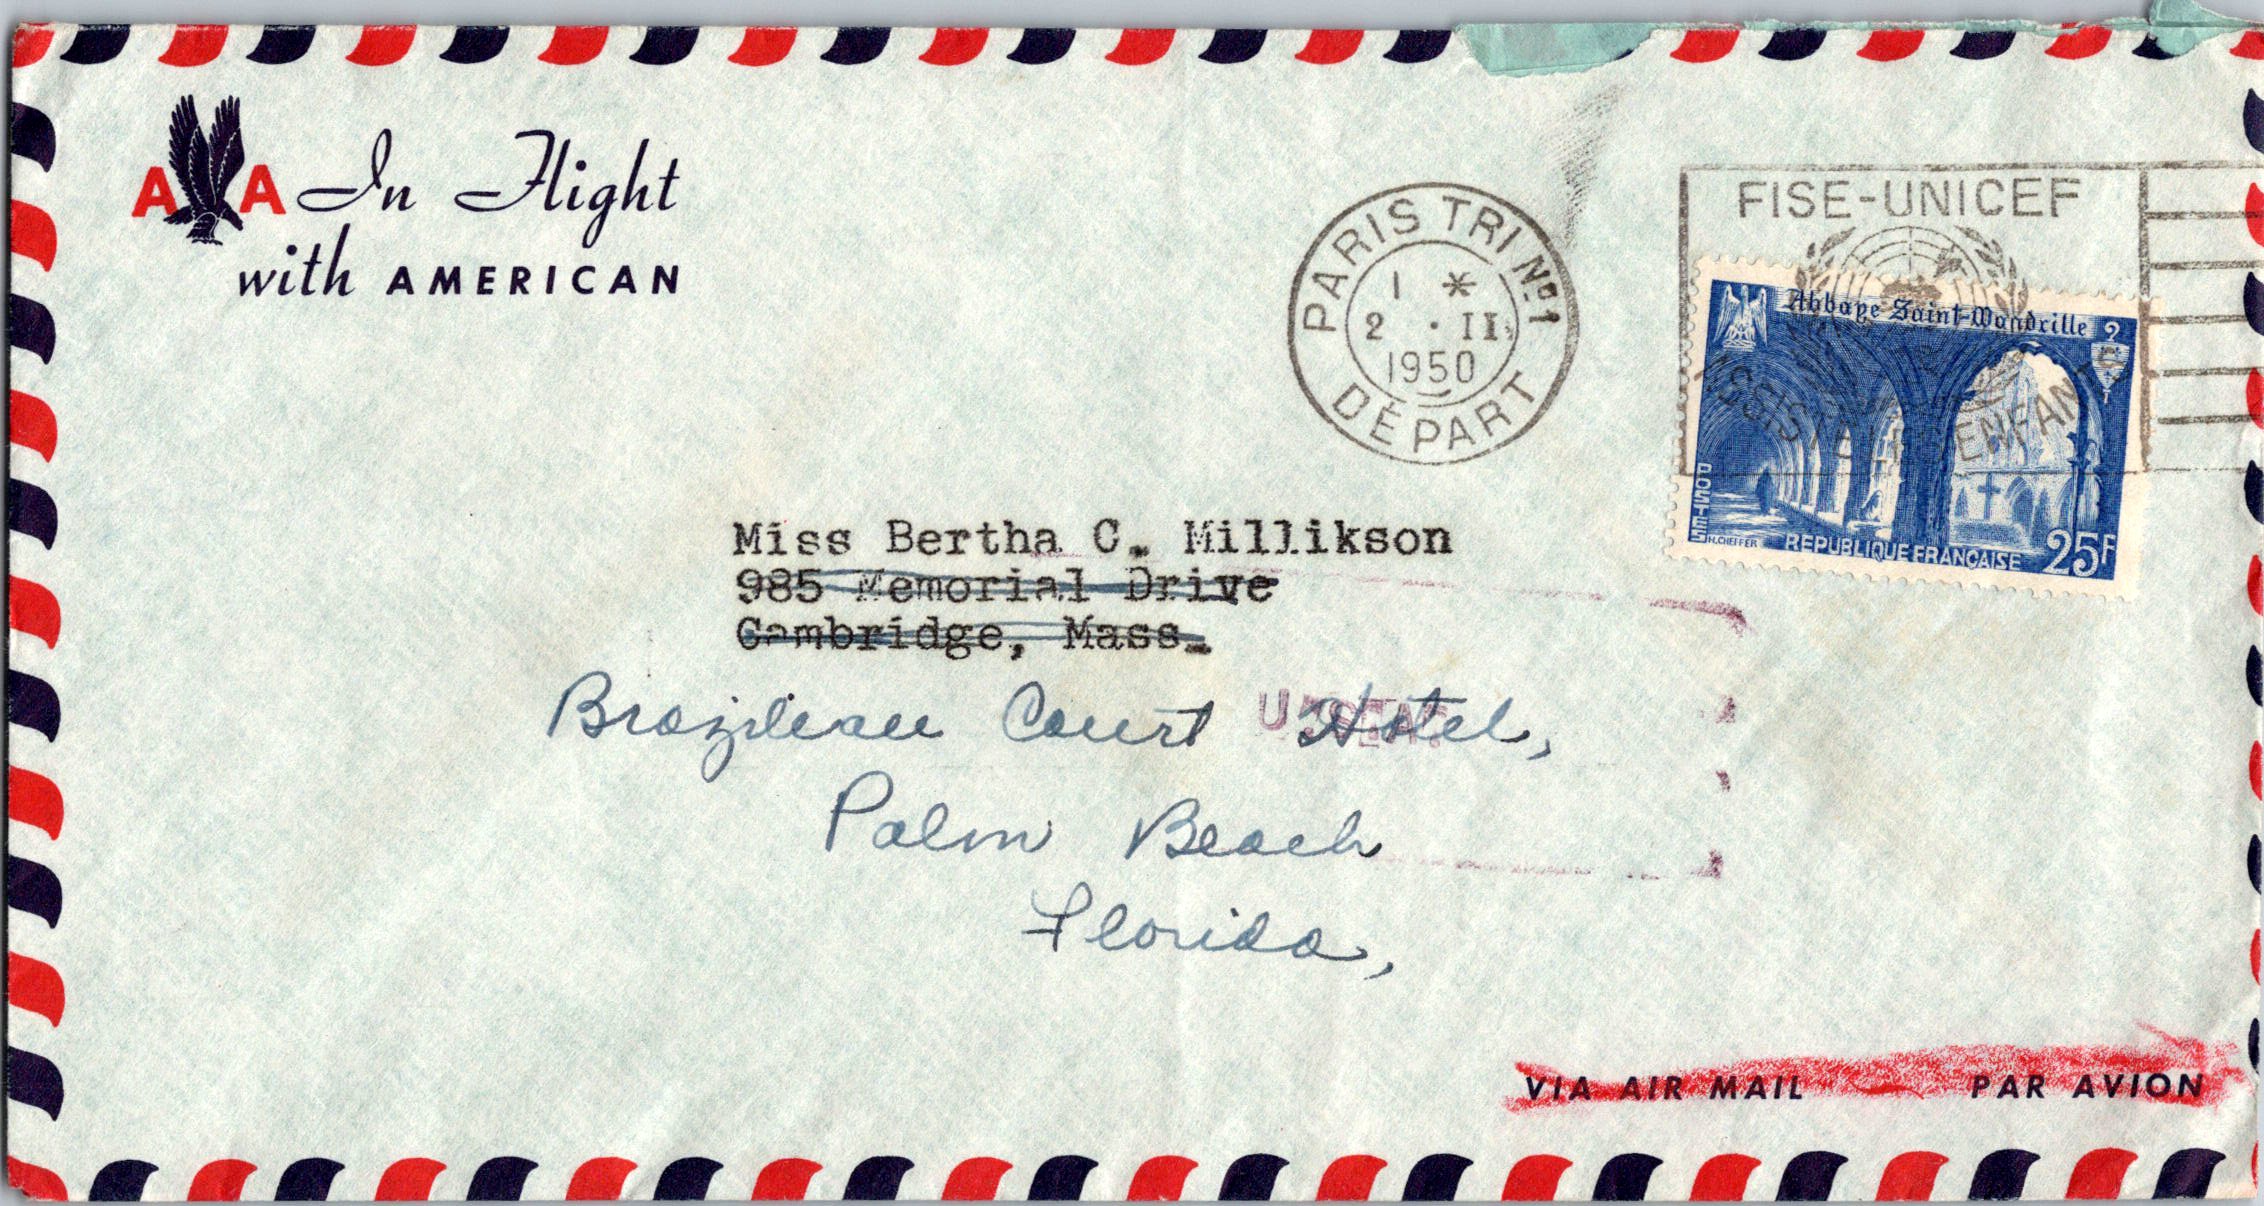 A A In Flight
with AMERICAN
PARIS TRI Nº1
1 *
2 · II
1950
DÉPART
FISE-UNICEF
ASSISTE LES ENFANTS
Abbaye Saint-Wandrille
POSTES
H.CHEFFER
REPUBLIQUE FRANÇAISE
25F
Miss Bertha C. Millikson
985 Memorial Drive
Cambridge, Mass.
Brazilian Court Hotel,
Palm Beach
Florida,
VIA AIR MAIL PAR AVION